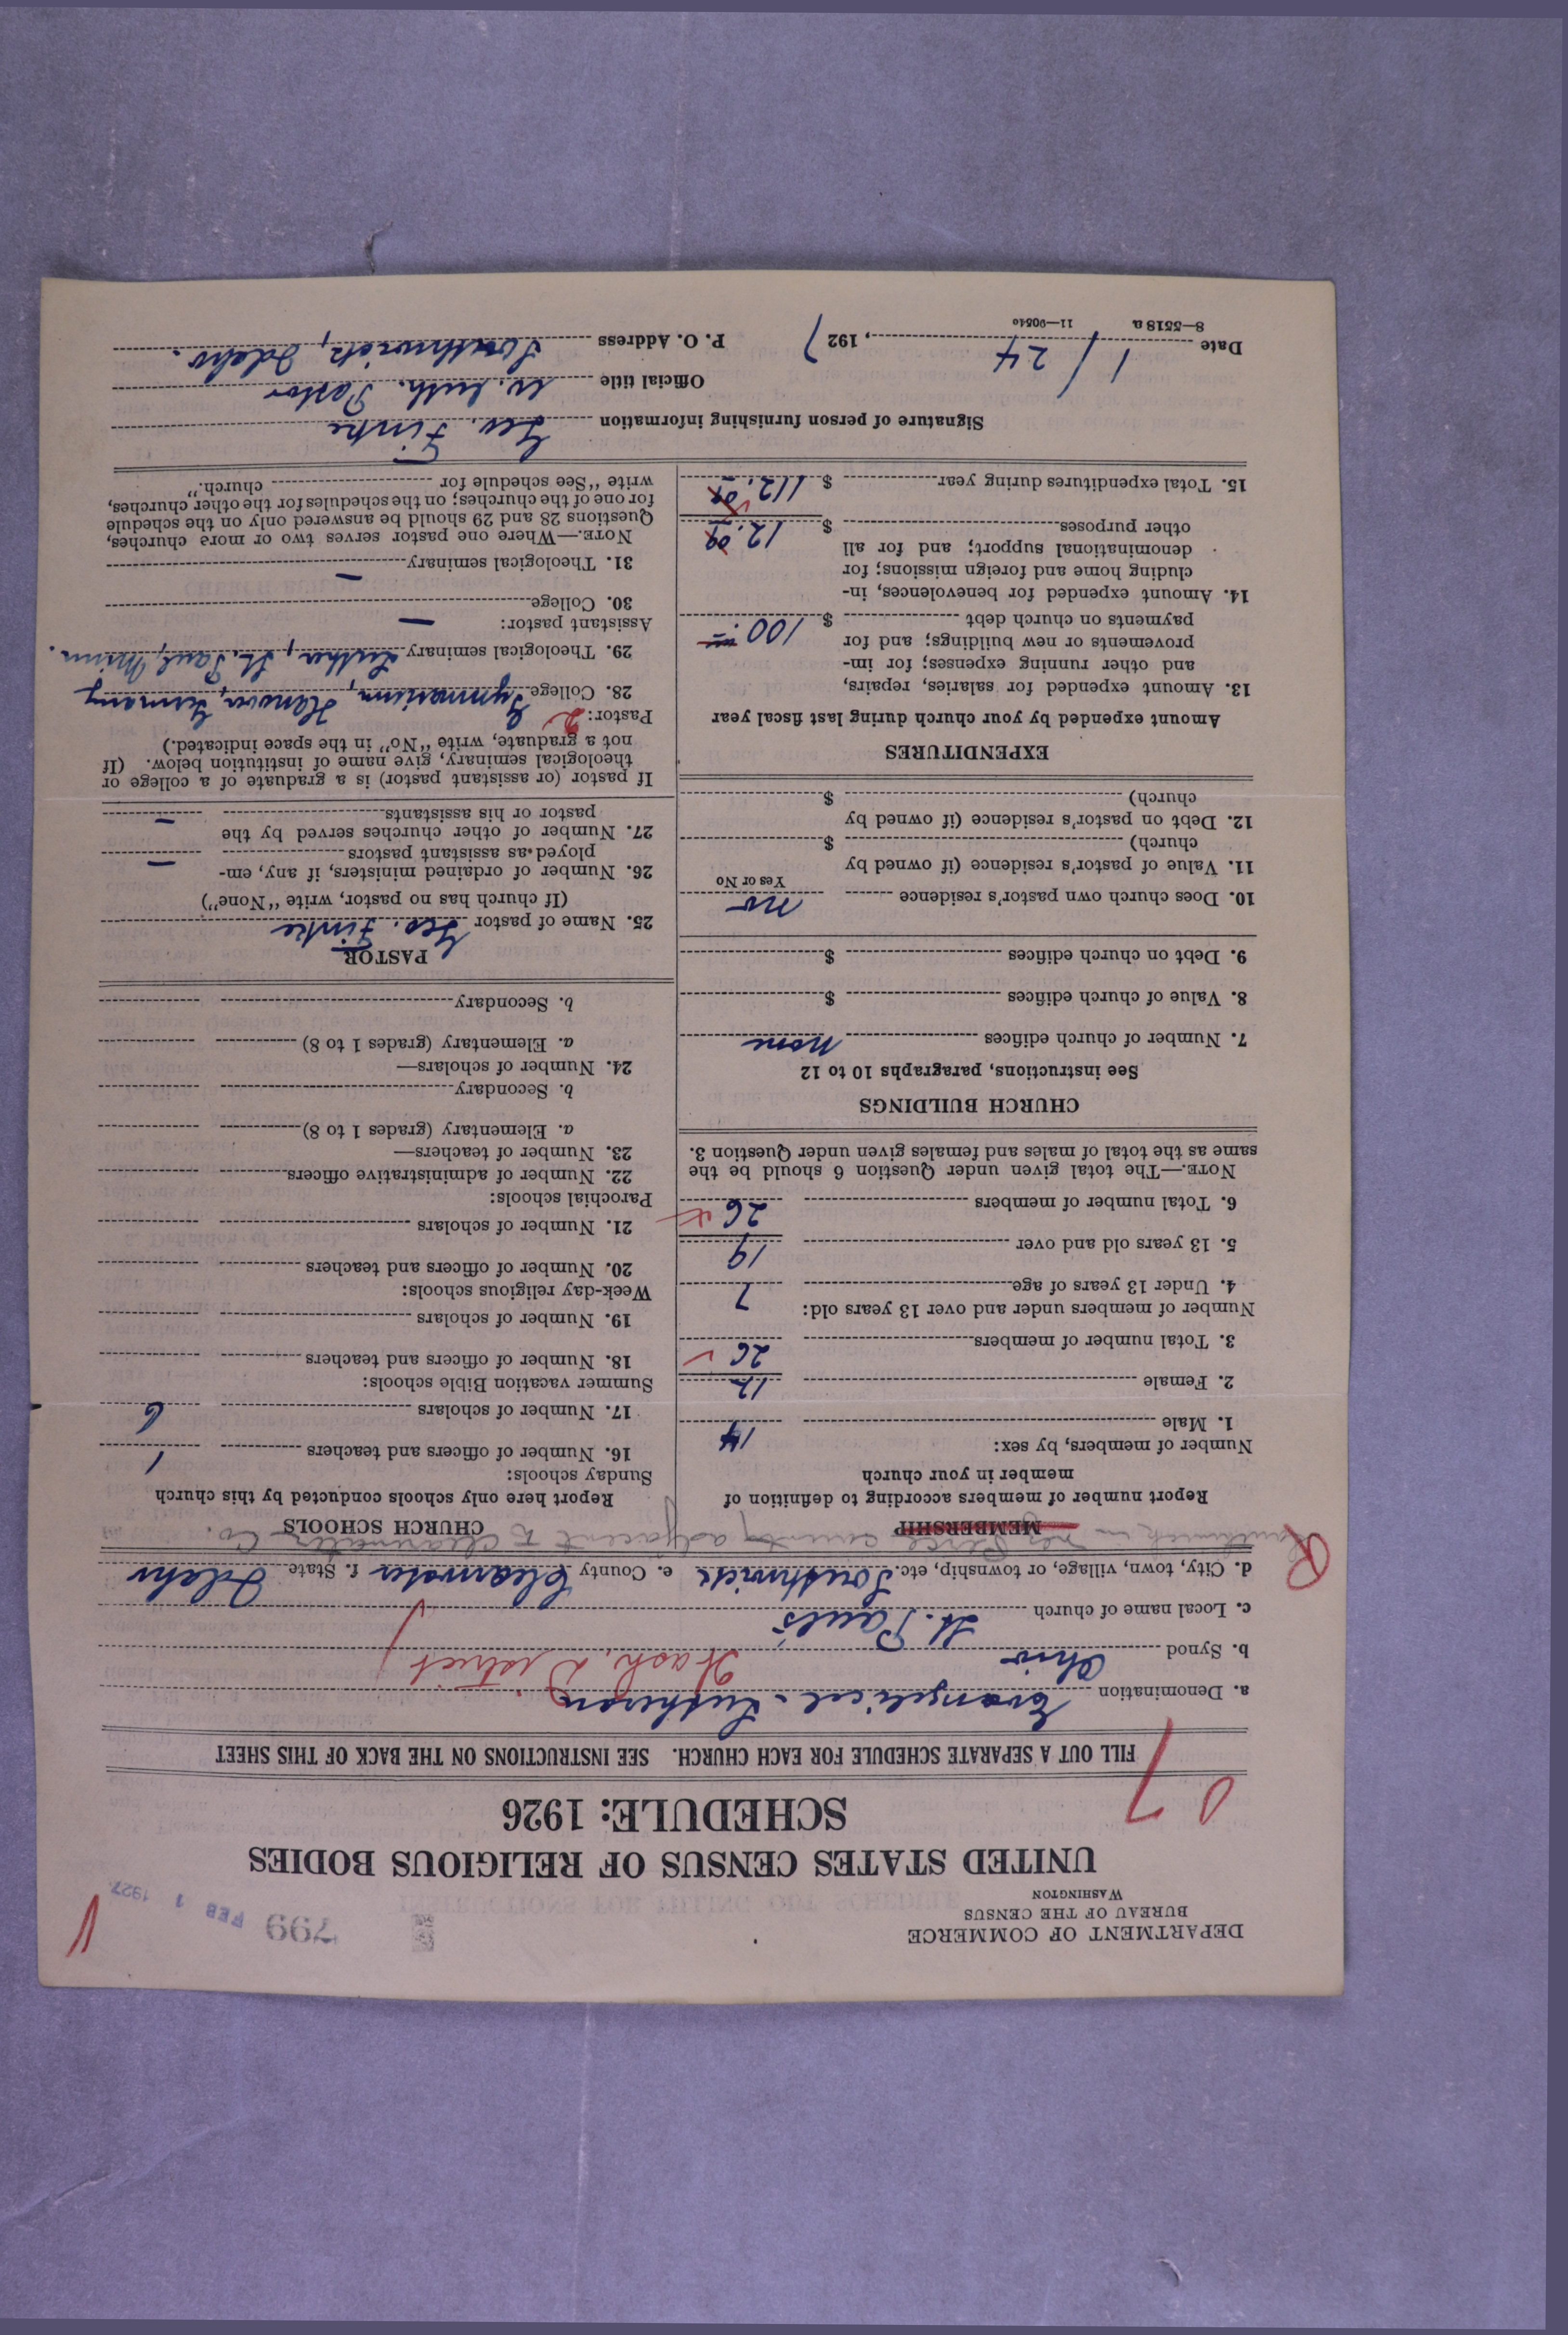 DEPARTMENT OF COMMERCE
BUREAU OF THE CENSUS
WASHINGTON
799
FEB 1 1927
UNITED STATES CENSUS OF RELIGIOUS BODIES
SCHEDULE: 1926
FILL OUT A SEPARATE SCHEDULE FOR EACH CHURCH. SEE INSTRUCTIONS ON THE BACK OF THIS SHEET
a. Denomination Evangelical-Lutheran
b. Synod Ohio Wash. District
c. Local name of church St. Paul's
d. City, town, village, or township, etc. Southwick e. County Clearwater f. State Idaho
Southwick in Nez Perce county adjacent to Clearwater Co.
MEMBERSHIP
Report number of members according to definition of
member in your church
Number of members, by sex:
1. Male 14
2. Female 12
3. Total number of members 26
Number of members under and over 13 years old:
4. Under 13 years of age 7
5. 13 years old and over 19
6. Total number of members 26
NOTE.—The total given under Question 6 should be the
same as the total of males and females given under Question 3.
CHURCH BUILDINGS
See instructions, paragraphs 10 to 12
7. Number of church edifices none
8. Value of church edifices $
9. Debt on church edifices $
10. Does church own pastor's residence no
Yes or No
11. Value of pastor's residence (if owned by
church) $
12. Debt on pastor's residence (if owned by
church) $
EXPENDITURES
Amount expended by your church during last fiscal year
13. Amount expended for salaries, repairs,
and other running expenses; for im-
provements or new buildings; and for
payments on church debt $ 100.
14. Amount expended for benevolences, in-
cluding home and foreign missions; for
denominational support; and for all
other purposes $ 12.
15. Total expenditures during year $ 112.
CHURCH SCHOOLS
Report here only schools conducted by this church
Sunday schools:
16. Number of officers and teachers 1
17. Number of scholars 6
Summer vacation Bible schools:
18. Number of officers and teachers
19. Number of scholars
Week-day religious schools:
20. Number of officers and teachers
21. Number of scholars
Parochial schools:
22. Number of administrative officers
23. Number of teachers—
a. Elementary (grades 1 to 8)
b. Secondary
24. Number of scholars—
a. Elementary (grades 1 to 8)
b. Secondary
PASTOR
25. Name of pastor Geo. Finke
(If church has no pastor, write "None")
26. Number of ordained ministers, if any, em-
ployed as assistant pastors —
27. Number of other churches served by the
pastor or his assistants —
If pastor (or assistant pastor) is a graduate of a college or
theological seminary, give name of institution below. (If
not a graduate, write "No" in the space indicated.)
Pastor: 2
28. College Gymnasium, Hanover, Germany
29. Theological seminary Luther, St. Paul, Minn.
Assistant pastor:
30. College —
31. Theological seminary —
NOTE.—Where one pastor serves two or more churches,
Questions 28 and 29 should be answered only on the schedule
for one of the churches; on the schedules for the other churches,
write "See schedule for church."
Signature of person furnishing information Geo. Finke
Official title Ev. Luth. Pastor
Date 1/24, 1927 P. O. Address Southwick, Idaho.
8—5518a 11—9054o